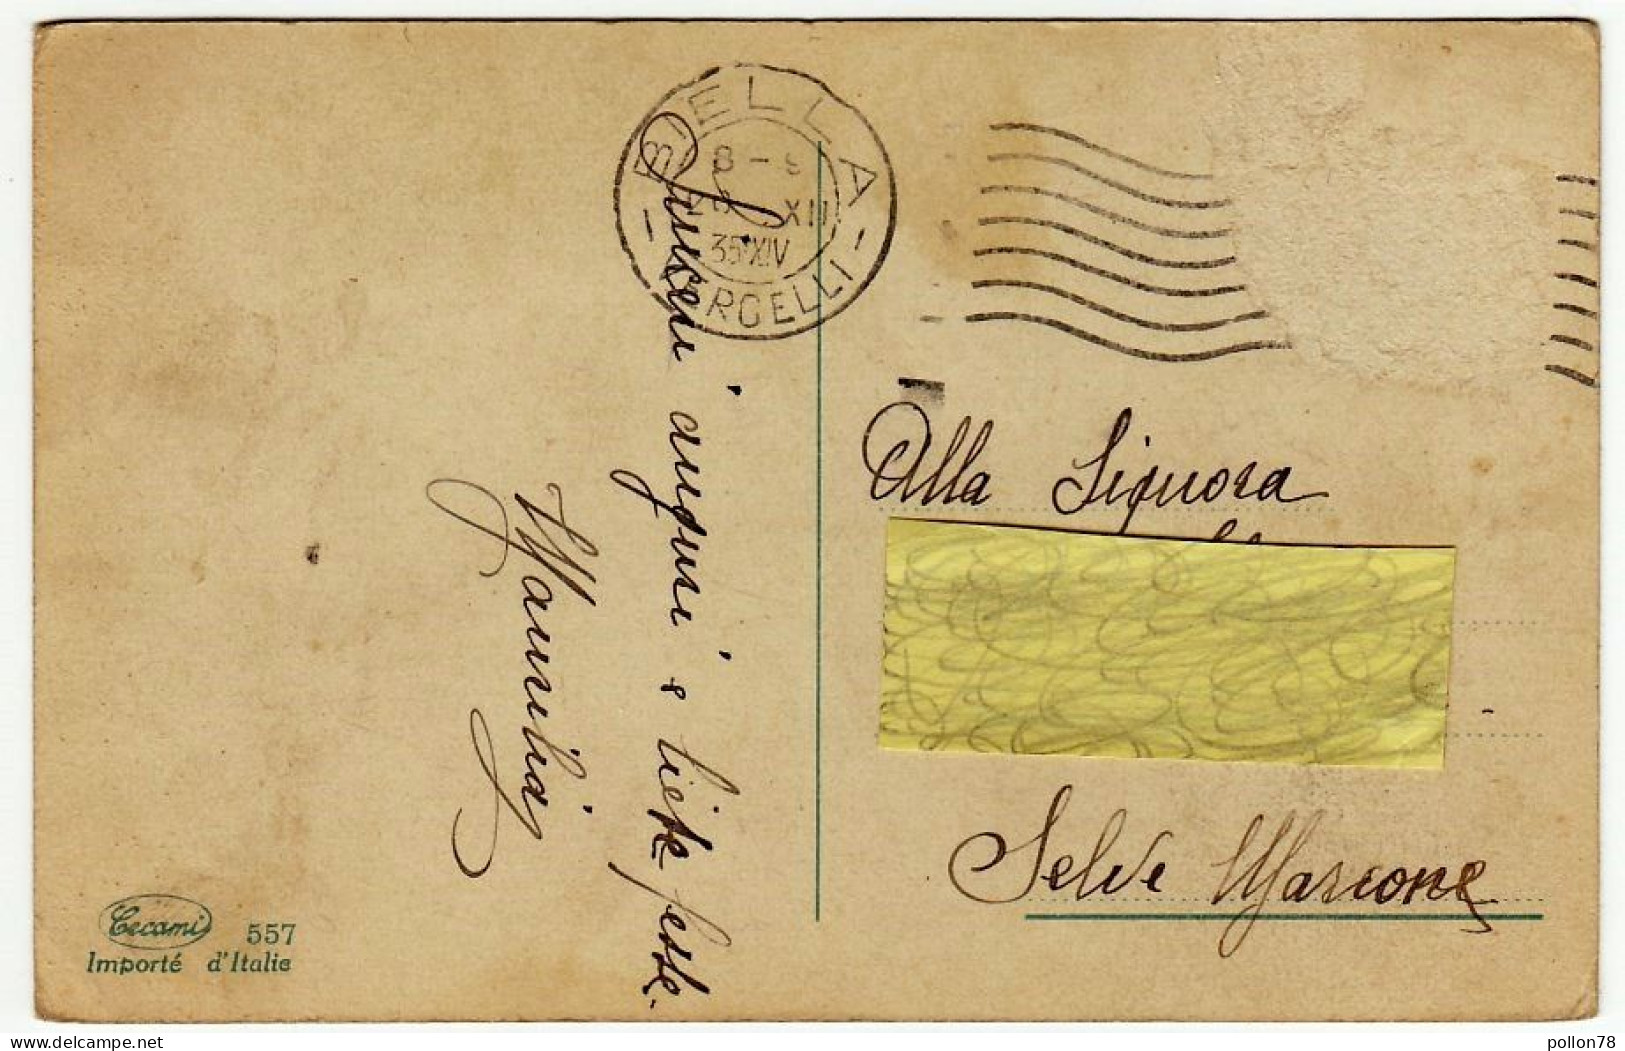 BIELLA
8-9
XII
35 XIV
VERCELLI
Sinceri auguri e liete feste.
Alla Signora
Selve Marcone
Cecami 557
Importé d'Italie
pollon78